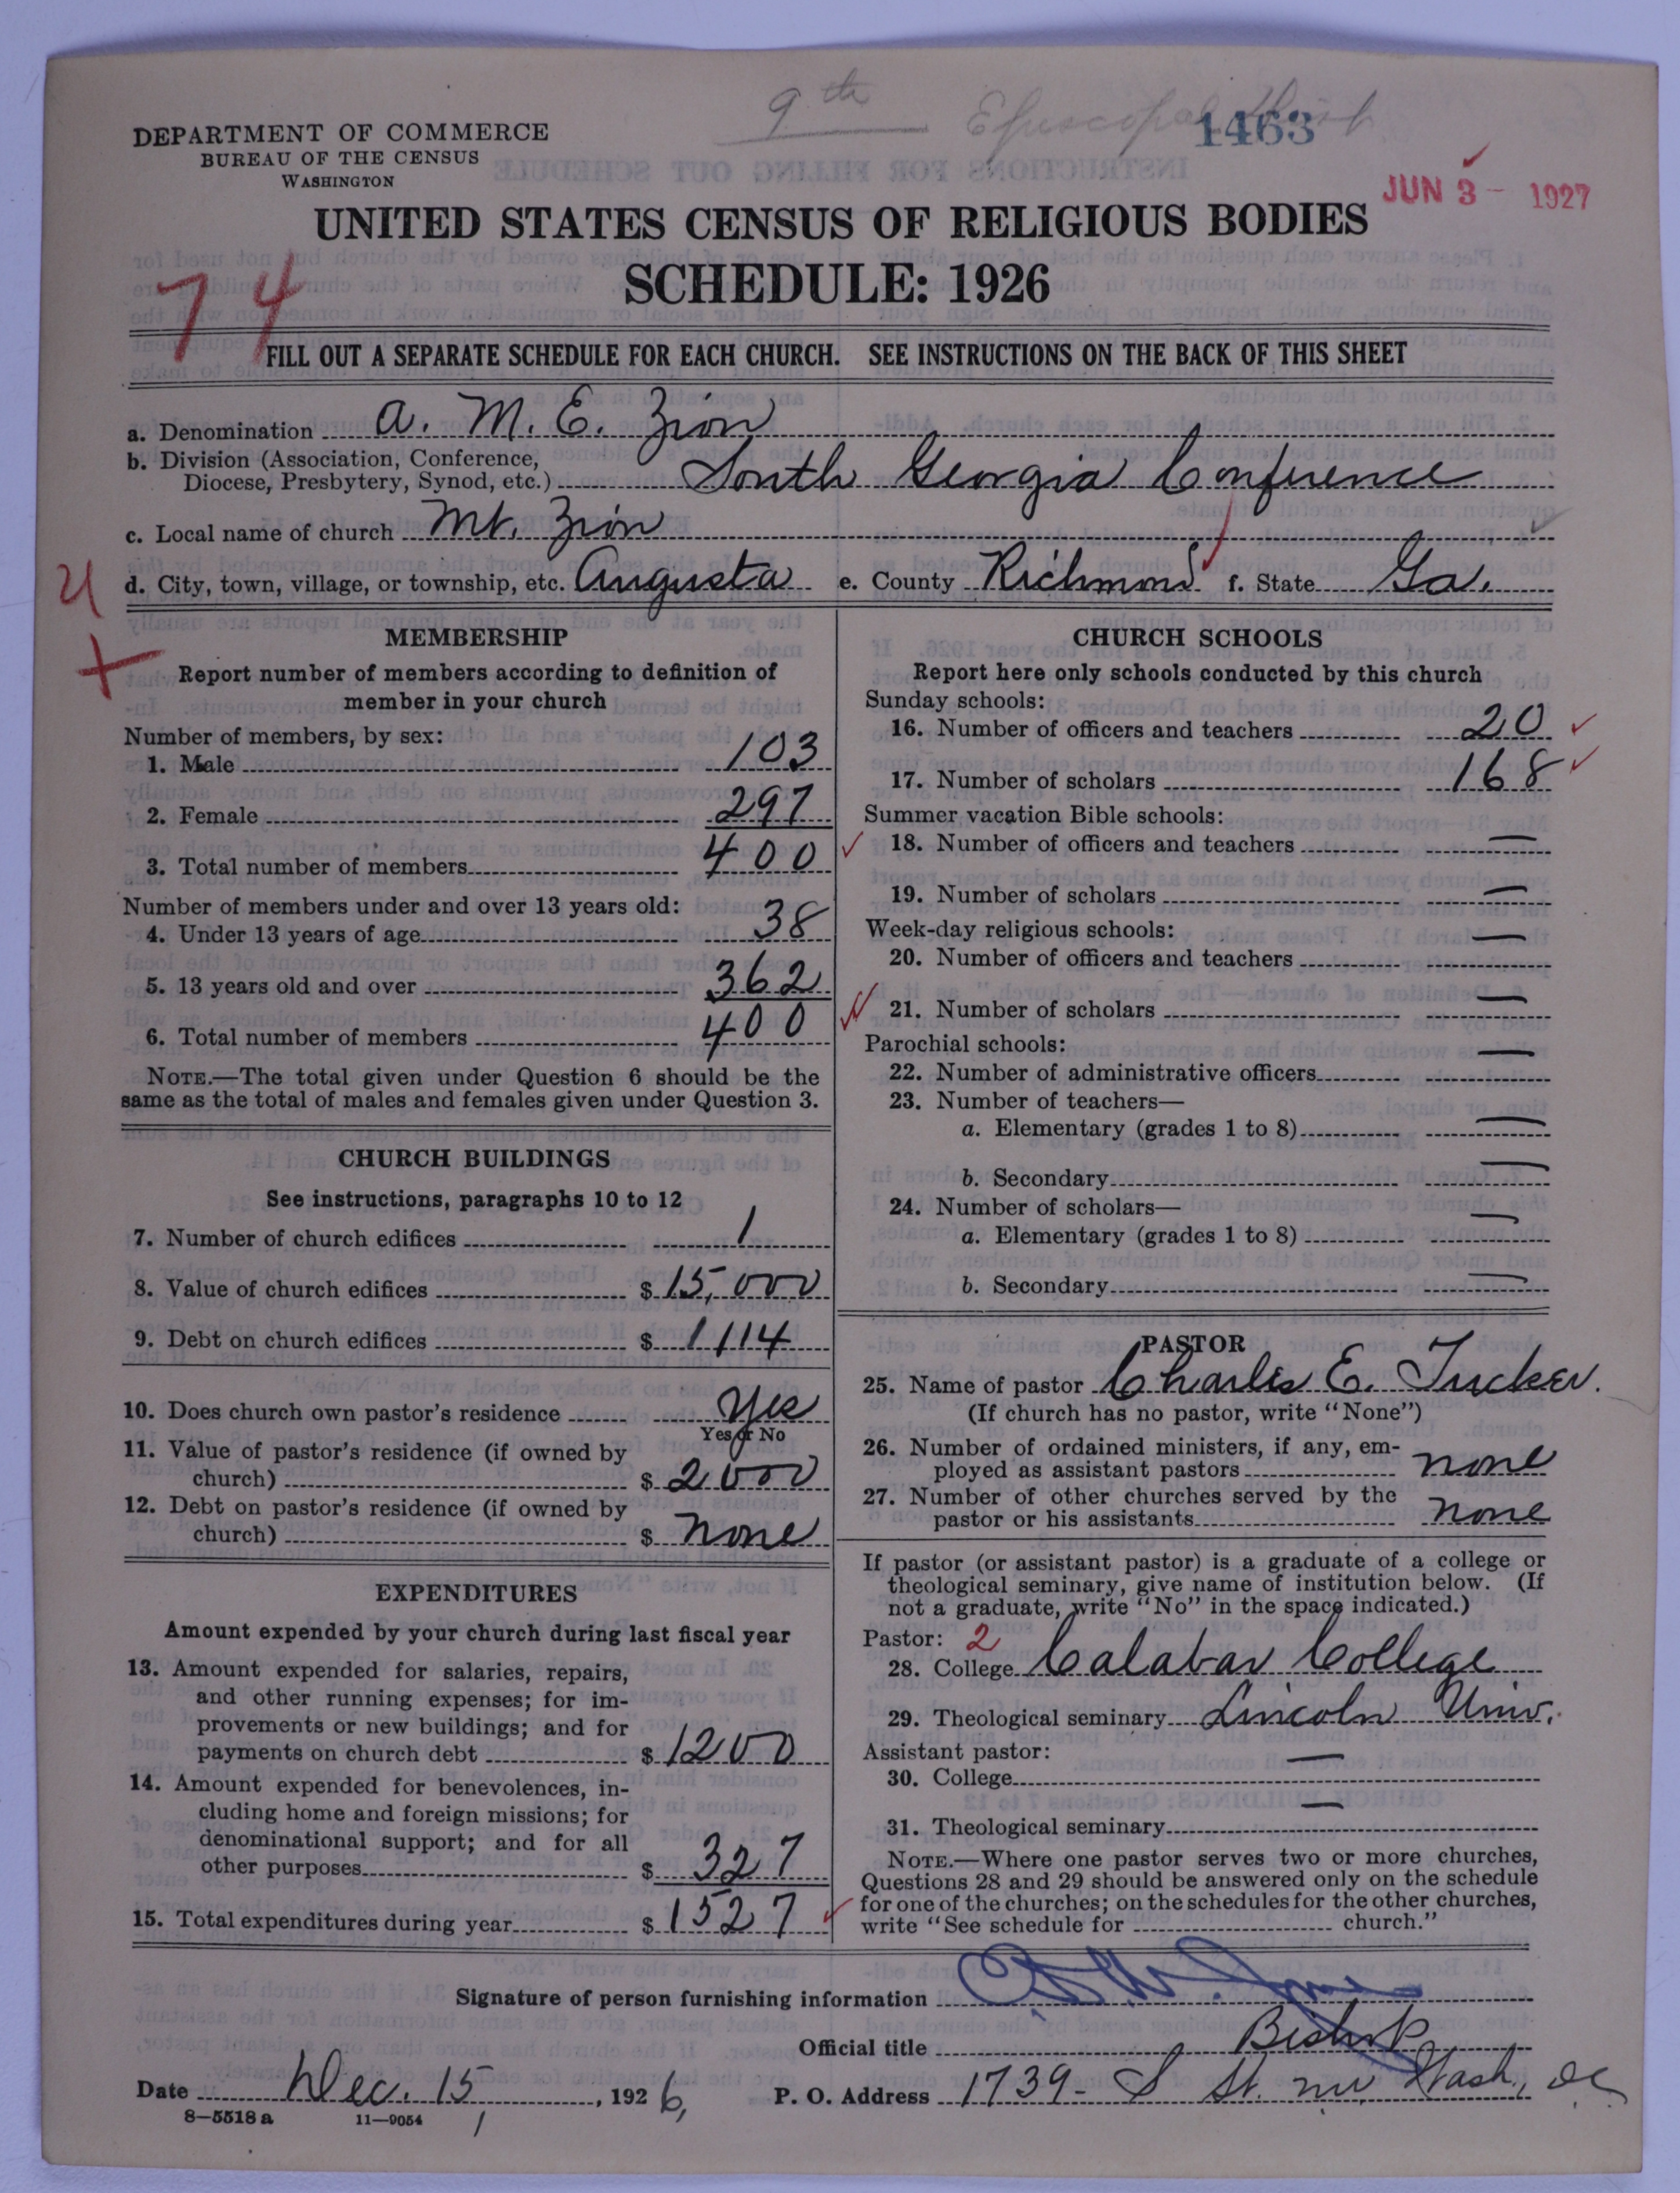 9th Episcopal Dist
1463
DEPARTMENT OF COMMERCE
BUREAU OF THE CENSUS
WASHINGTON
JUN 3 - 1927
UNITED STATES CENSUS OF RELIGIOUS BODIES
SCHEDULE: 1926
74
FILL OUT A SEPARATE SCHEDULE FOR EACH CHURCH. SEE INSTRUCTIONS ON THE BACK OF THIS SHEET
a. Denomination A. M. E. Zion
b. Division (Association, Conference,
Diocese, Presbytery, Synod, etc.) South Georgia Conference
c. Local name of church Mt. Zion
d. City, town, village, or township, etc. Augusta e. County Richmond f. State Ga.
MEMBERSHIP
Report number of members according to definition of
member in your church
Number of members, by sex:
1. Male 103
2. Female 297
3. Total number of members 400
Number of members under and over 13 years old:
4. Under 13 years of age 38
5. 13 years old and over 362
6. Total number of members 400
NOTE.—The total given under Question 6 should be the
same as the total of males and females given under Question 3.
CHURCH BUILDINGS
See instructions, paragraphs 10 to 12
7. Number of church edifices 1
8. Value of church edifices $ 15,000
9. Debt on church edifices $ 1114
10. Does church own pastor's residence Yes
Yes or No
11. Value of pastor's residence (if owned by
church) $ 2000
12. Debt on pastor's residence (if owned by
church) $ none
EXPENDITURES
Amount expended by your church during last fiscal year
13. Amount expended for salaries, repairs,
and other running expenses; for im-
provements or new buildings; and for
payments on church debt $ 1200
14. Amount expended for benevolences, in-
cluding home and foreign missions; for
denominational support; and for all
other purposes $ 327
15. Total expenditures during year $ 1527
CHURCH SCHOOLS
Report here only schools conducted by this church
Sunday schools:
16. Number of officers and teachers 20
17. Number of scholars 168
Summer vacation Bible schools:
18. Number of officers and teachers —
19. Number of scholars —
Week-day religious schools:
20. Number of officers and teachers —
21. Number of scholars —
Parochial schools:
22. Number of administrative officers —
23. Number of teachers—
a. Elementary (grades 1 to 8) —
b. Secondary —
24. Number of scholars—
a. Elementary (grades 1 to 8) —
b. Secondary —
PASTOR
25. Name of pastor Charles E. Tucker.
(If church has no pastor, write "None")
26. Number of ordained ministers, if any, em-
ployed as assistant pastors none
27. Number of other churches served by the
pastor or his assistants none
If pastor (or assistant pastor) is a graduate of a college or
theological seminary, give name of institution below. (If
not a graduate, write "No" in the space indicated.)
Pastor: 2
28. College Calabar College
29. Theological seminary Lincoln Univ.
Assistant pastor:
30. College —
31. Theological seminary —
NOTE.—Where one pastor serves two or more churches,
Questions 28 and 29 should be answered only on the schedule
for one of the churches; on the schedules for the other churches,
write "See schedule for church."
Signature of person furnishing information
Official title Bishop
Date Dec. 15, 1926, P. O. Address 1739- S St. nw Wash, DC
8—5518 a 11—9054